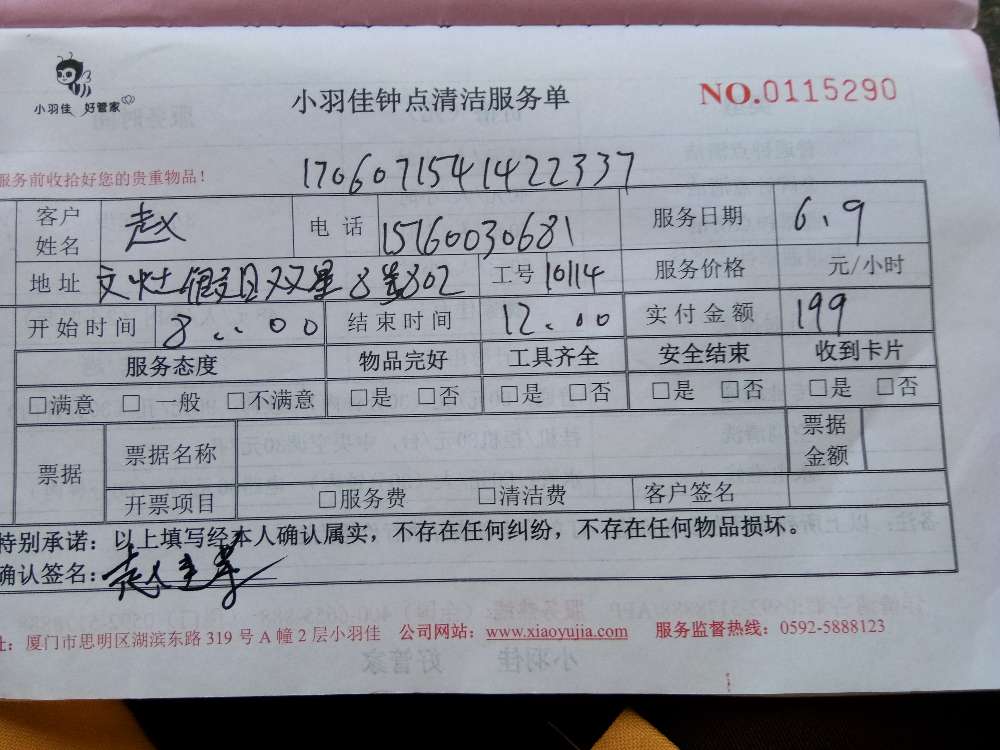 小羽佳 好管家
小羽佳钟点清洁服务单
NO.0115290
服务前收拾好您的贵重物品！
1706071541422337
客户姓名 赵 电话 15160030681 服务日期 6.9
地址 文灶假日双星8 802 工号 10114 服务价格 元/小时
开始时间 8:00 结束时间 12:00 实付金额 199
服务态度 物品完好 工具齐全 安全结束 收到卡片
□满意 □一般 □不满意 □是 □否 □是 □否 □是 □否 □是 □否
票据 票据名称 票据金额
开票项目 □服务费 □清洁费 客户签名
特别承诺：以上填写经本人确认属实，不存在任何纠纷，不存在任何物品损坏。
确认签名：赵
址：厦门市思明区湖滨东路319号A幢2层小羽佳 公司网站：www.xiaoyujia.com 服务监督热线：0592-5888123